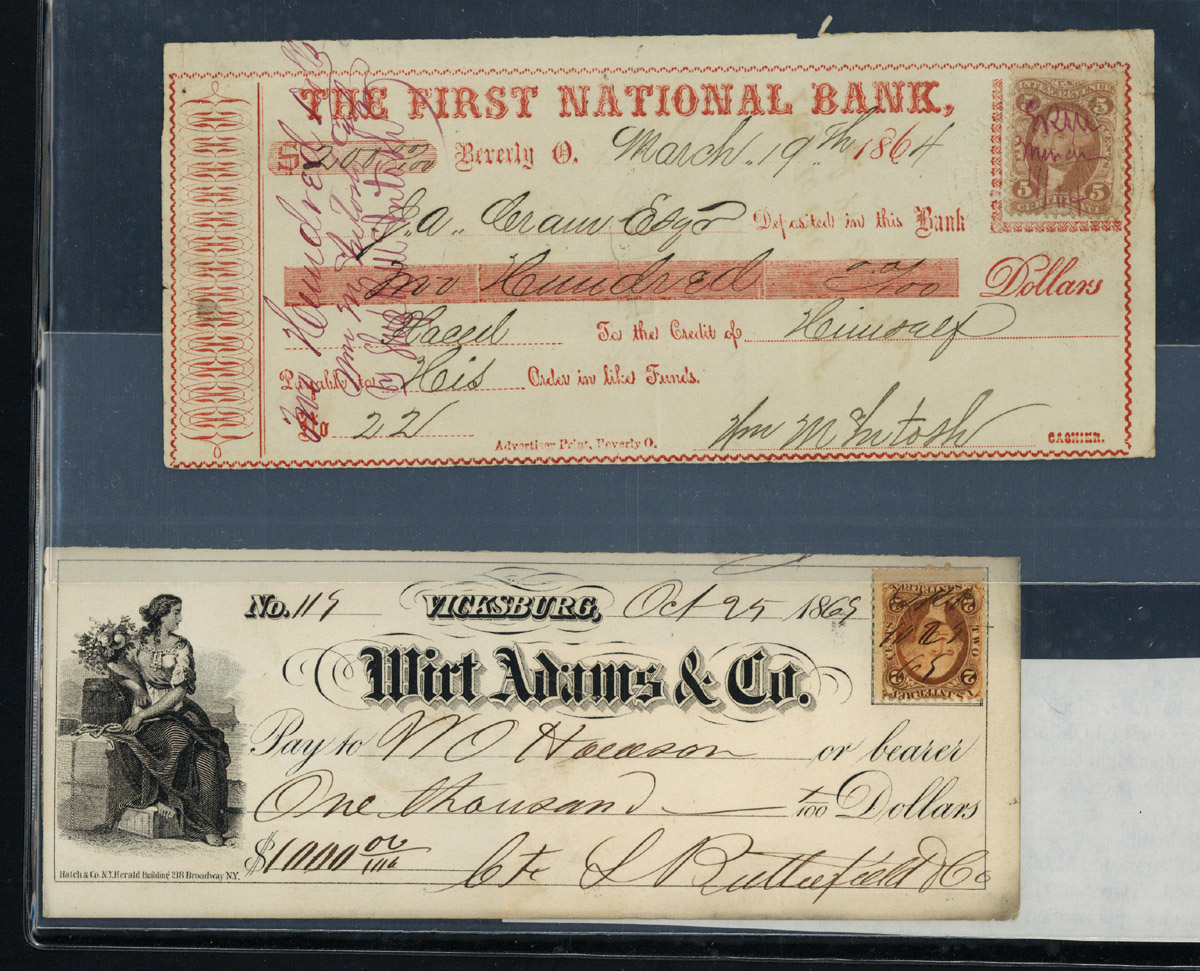 THE FIRST NATIONAL BANK,
$ 200 00/100 Beverly O. March 19th 1864
J. A. Esqr Deposited in this Bank
Two Hundred 00/100 Dollars
To the Credit of Himself
Payable to His Order in like Funds.
No 22
Wm McIntosh CASHIER.
Advertiser Print, Beverly O.
Two Hundred
Wm McIntosh
5 5
5 5
No. 119 VICKSBURG, Oct 25 1865
Wirt Adams & Co.
Pay to W O or bearer
One thousand /100 Dollars
$1000 00/100
S Butterfield & Co
Hatch & Co. N.Y. Herald Building 218 Broadway N.Y.
2 2
TWO
2 2
65